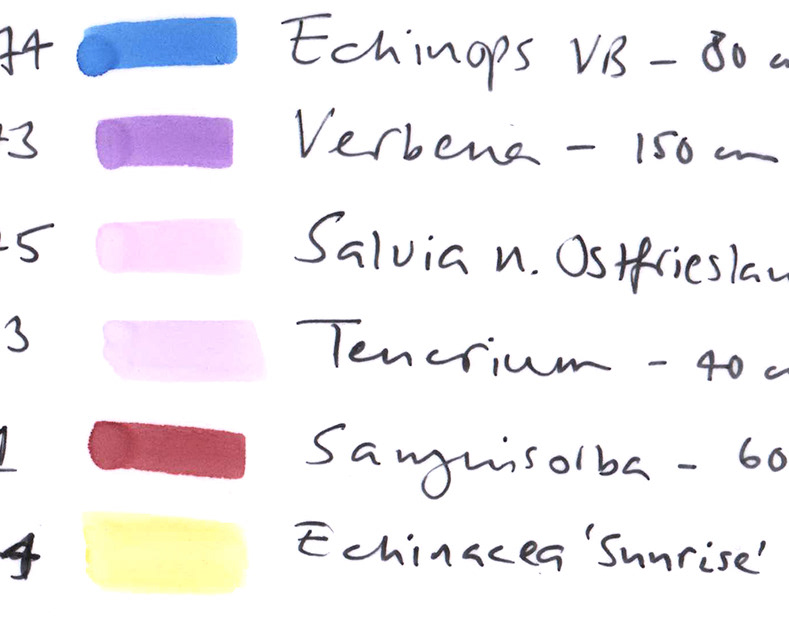 74 Echinops VB – 80 c
3 Verbena – 150 cm
5 Salvia n. Ostfrieslan
3 Teucrium – 40 c
1 Sanguisorba – 60
4 Echinacea 'Sunrise'